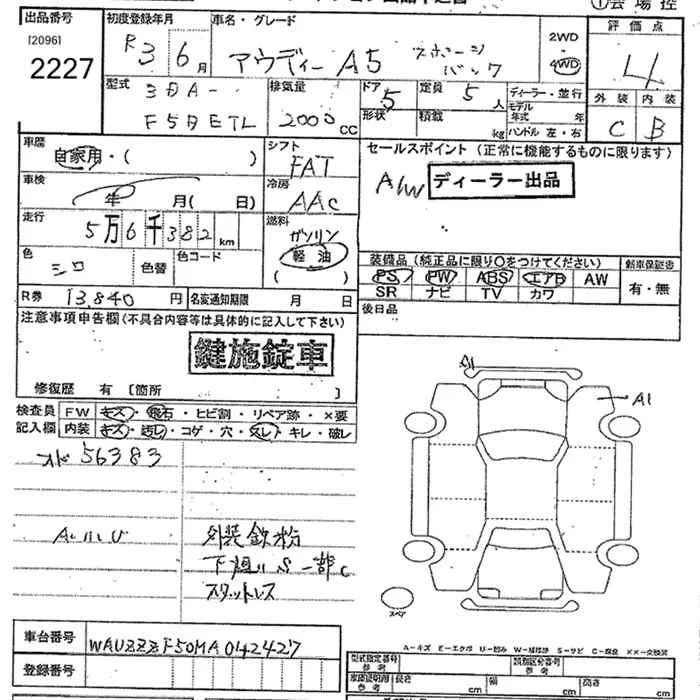 ①会場控
出品番号 初度登録年月 車名・グレード 評価点
[2096]
2227
R3 6月 アウディー A5 スポーツバック 2WD・4WD 4
型式 3DA- F5DETL 排気量 2000 CC
ドア 5 定員 5人 ディーラー・並行
形状 積載 kg モデル年式 年
ハンドル 左・右
外装 内装
C B
車歴 自家用・( )
シフト FAT
車検 年 月( 日)
冷房 AAC
走行 5万6千382km
燃料 ガソリン 軽油 ( )
色 シロ 色替 色コード
R券 13,840円 名変通知期限 月 日
セールスポイント (正常に機能するものに限ります)
A/W ディーラー出品
装備品 (純正品に限り○をつけてください) 新車保証書
PS PW ABS エアB AW 有・無
SR ナビ TV カワ
後日品
注意事項申告欄(不具合内容等は具体的に記入して下さい)
鍵施錠車
修復歴 有 [箇所 ]
検査員 FW キズ・飛石・ヒビ割・リペア跡・×要
記入欄 内装 キズ・汚レ・コゲ・穴・スレ・キレ・破レ
オド 56383
外装鉄粉
下廻りS一部C
スタッドレス
A1
スペア
車台番号 WAUZZZF50MA042427
登録番号
A-キズ E-エクボ U-凹み W-補修跡 S-サビ C-腐食 XX-交換済
型式指定番号 参考 類別区分番号 参考
車庫証明用 参考 長さ cm 幅 cm 高さ cm